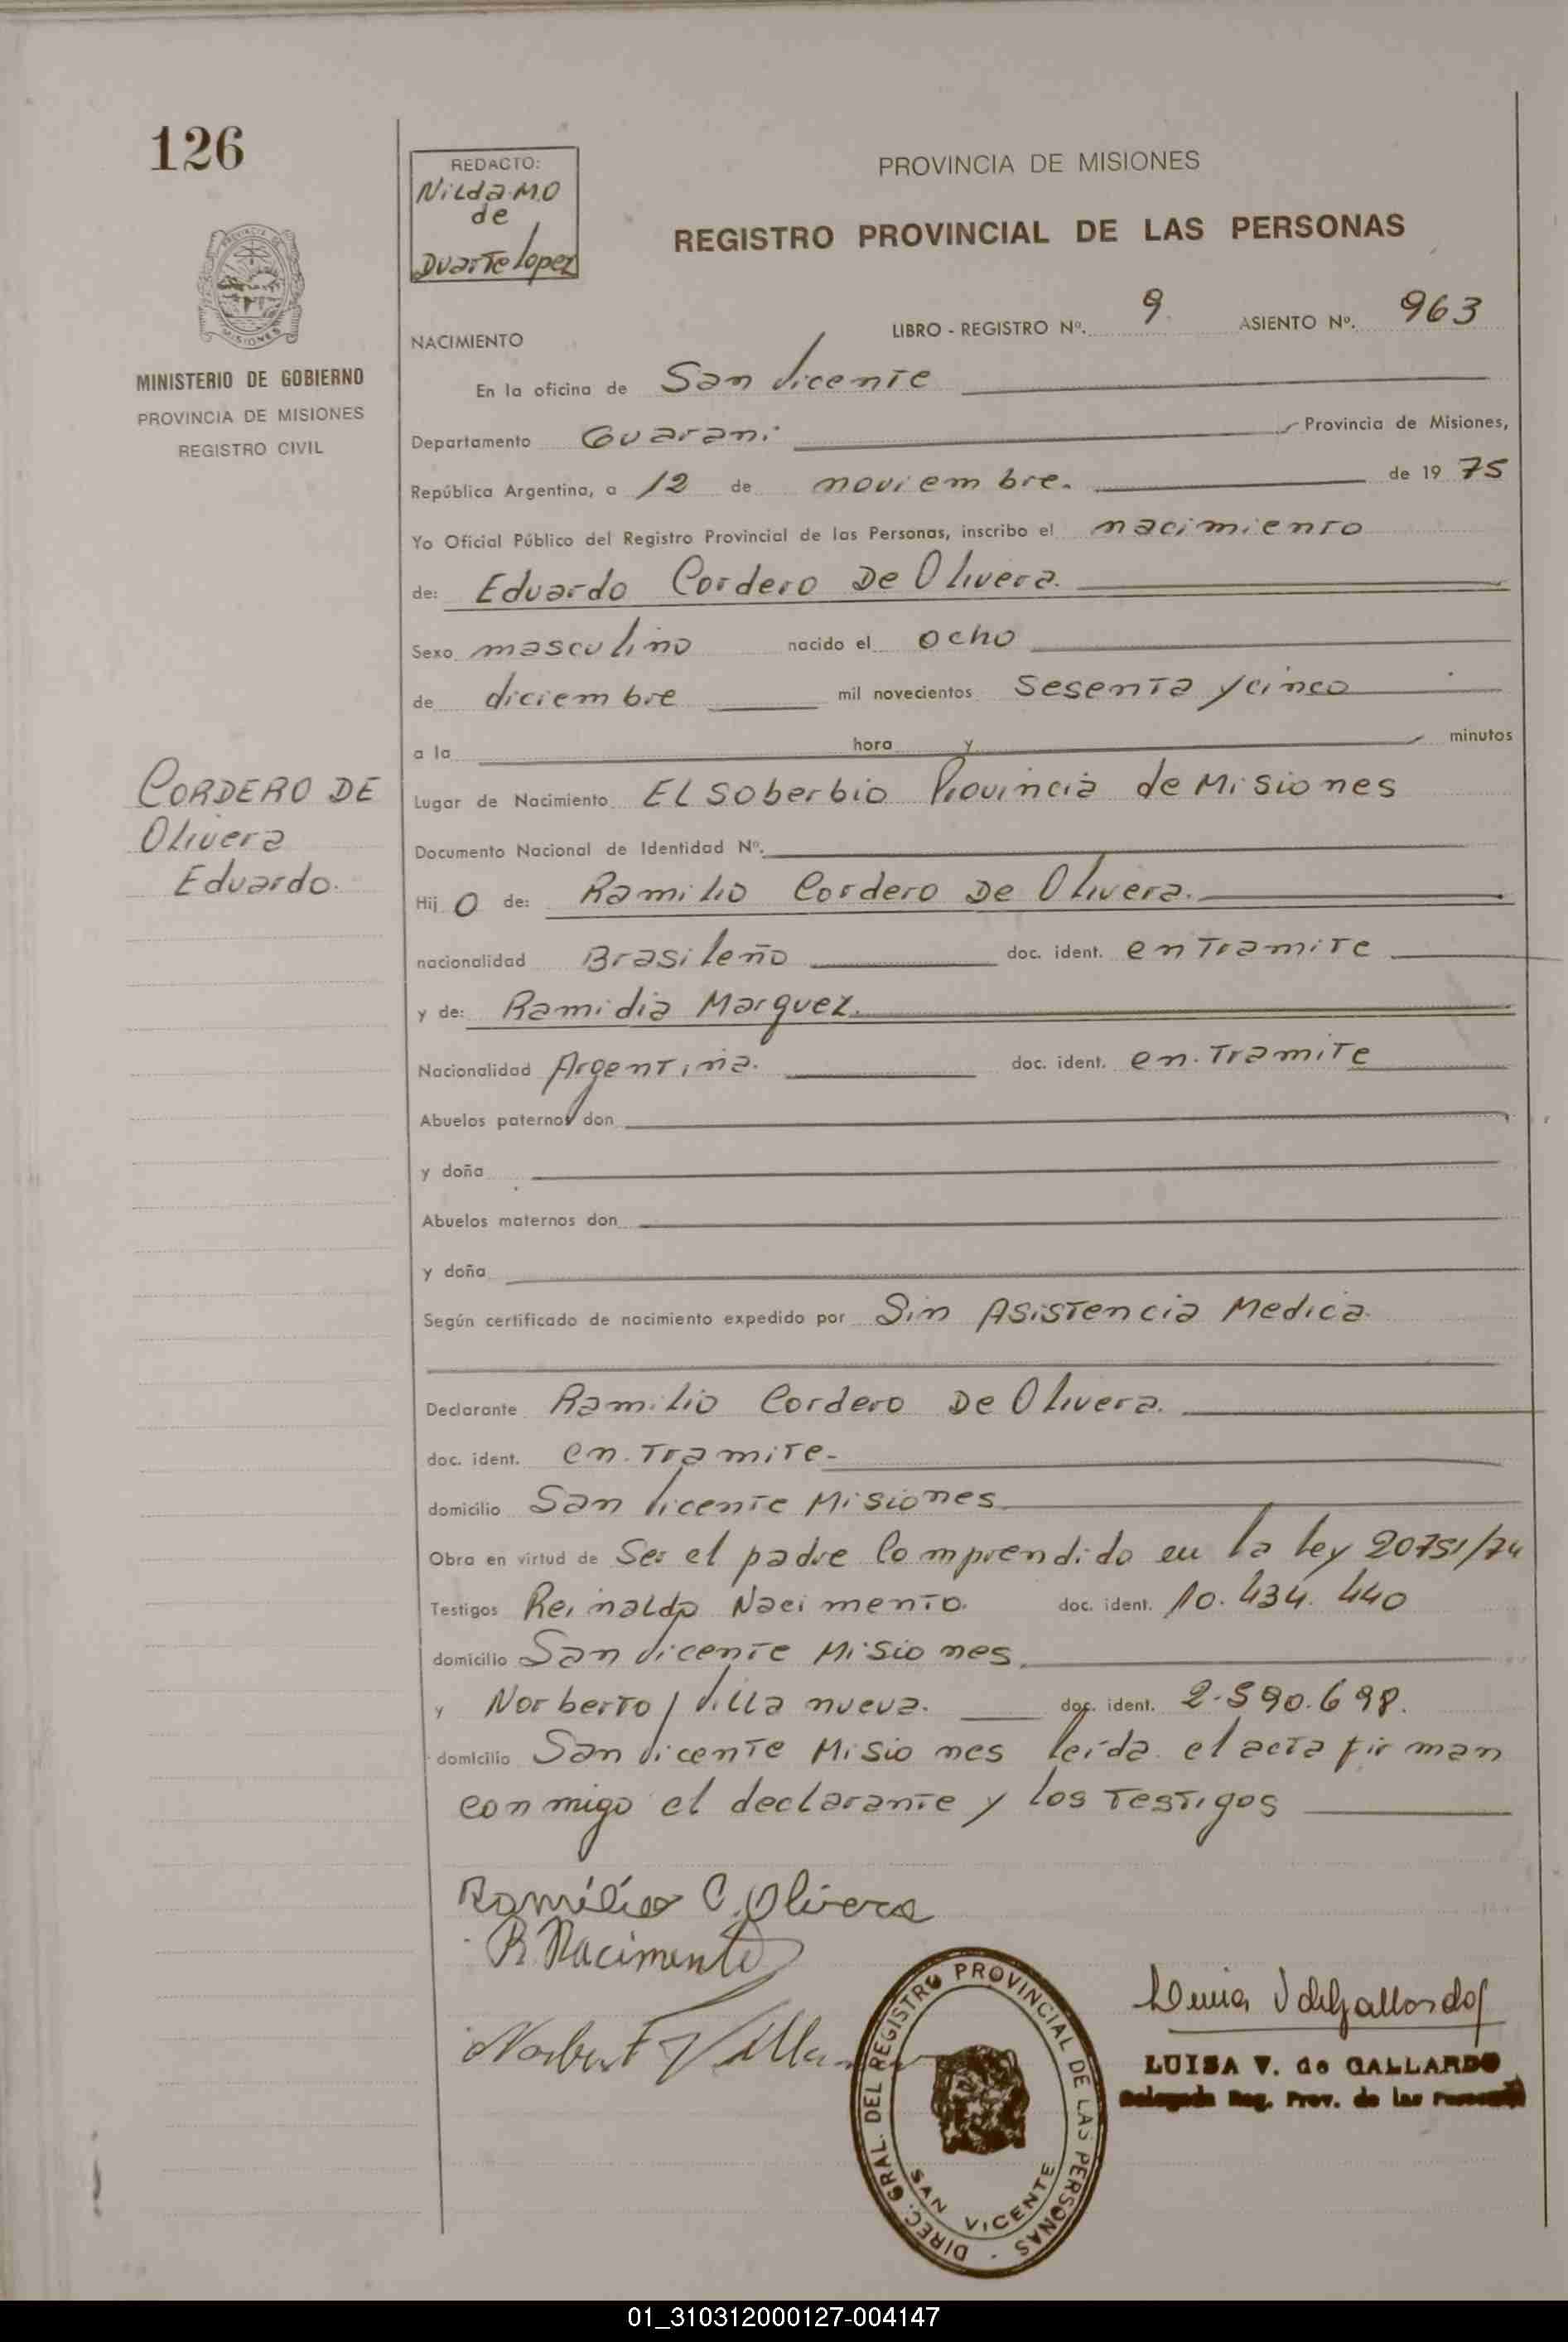 126
REDACTO:
Nilda M.O
de
Duarte Lopez
PROVINCIA DE MISIONES
REGISTRO PROVINCIAL DE LAS PERSONAS
MINISTERIO DE GOBIERNO
PROVINCIA DE MISIONES
REGISTRO CIVIL
LIBRO - REGISTRO Nº. 9 ASIENTO Nº. 963
NACIMIENTO
En la oficina de San Vicente
Departamento Guarani Provincia de Misiones,
República Argentina, a 12 de noviembre. de 19 75
Yo Oficial Público del Registro Provincial de las Personas, inscribo el nacimiento
de: Eduardo Cordero De Olivera.
Sexo masculino nacido el ocho
de diciembre mil novecientos sesenta y cinco
a la hora y minutos
CORDERO DE
Olivera
Eduardo.
Lugar de Nacimiento El Soberbio Provincia de Misiones
Documento Nacional de Identidad Nº.
Hij o de: Ramilio Cordero De Olivera.
nacionalidad Brasileño doc. ident. en Tramite
y de: Ramidia Marquez.
Nacionalidad Argentina. doc. ident. en. Tramite
Abuelos paternos don
y doña
Abuelos maternos don
y doña
Según certificado de nacimiento expedido por Sin Asistencia Medica.
Declarante Ramilio Cordero De Olivera.
doc. ident. en. Tramite-
domicilio San Vicente Misiones
Obra en virtud de Ser el padre Comprendido en la ley 20751/74
Testigos Reinaldo Nacimento. doc. ident. 10.434.440
domicilio San Vicente Misiones.
y Norberto Villanueva. doc. ident. 2.590.698.
domicilio San Vicente Misiones leída el acta firman
conmigo el declarante y los Testigos
Ramilio C. Olivera
R. Nacimento
DIREC. GRAL. DEL REGISTRO PROVINCIAL DE LAS PERSONAS -
SAN VICENTE
LUISA V. de GALLARDO
Delegada Reg. Prov. de las Personas
01_310312000127-004147